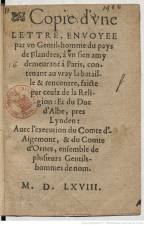 Copie d'vne
LETTRE, ENVOYEE
par vn Gentil-homme du pays
de Flandres, à vn sien amy
demeurant à Paris, con-
tenant au vray la batail-
le & rencontre, faicte
par ceulx de la Reli-
gion: Et du Duc
d'Albe, pres
Lynden:
Auec l'execution du Comte d'Ai-
gemont, & du Comte
d'Ornes, ensemble de
plusieurs Gentils-
hommes de nom.
M. D. LXVIII.